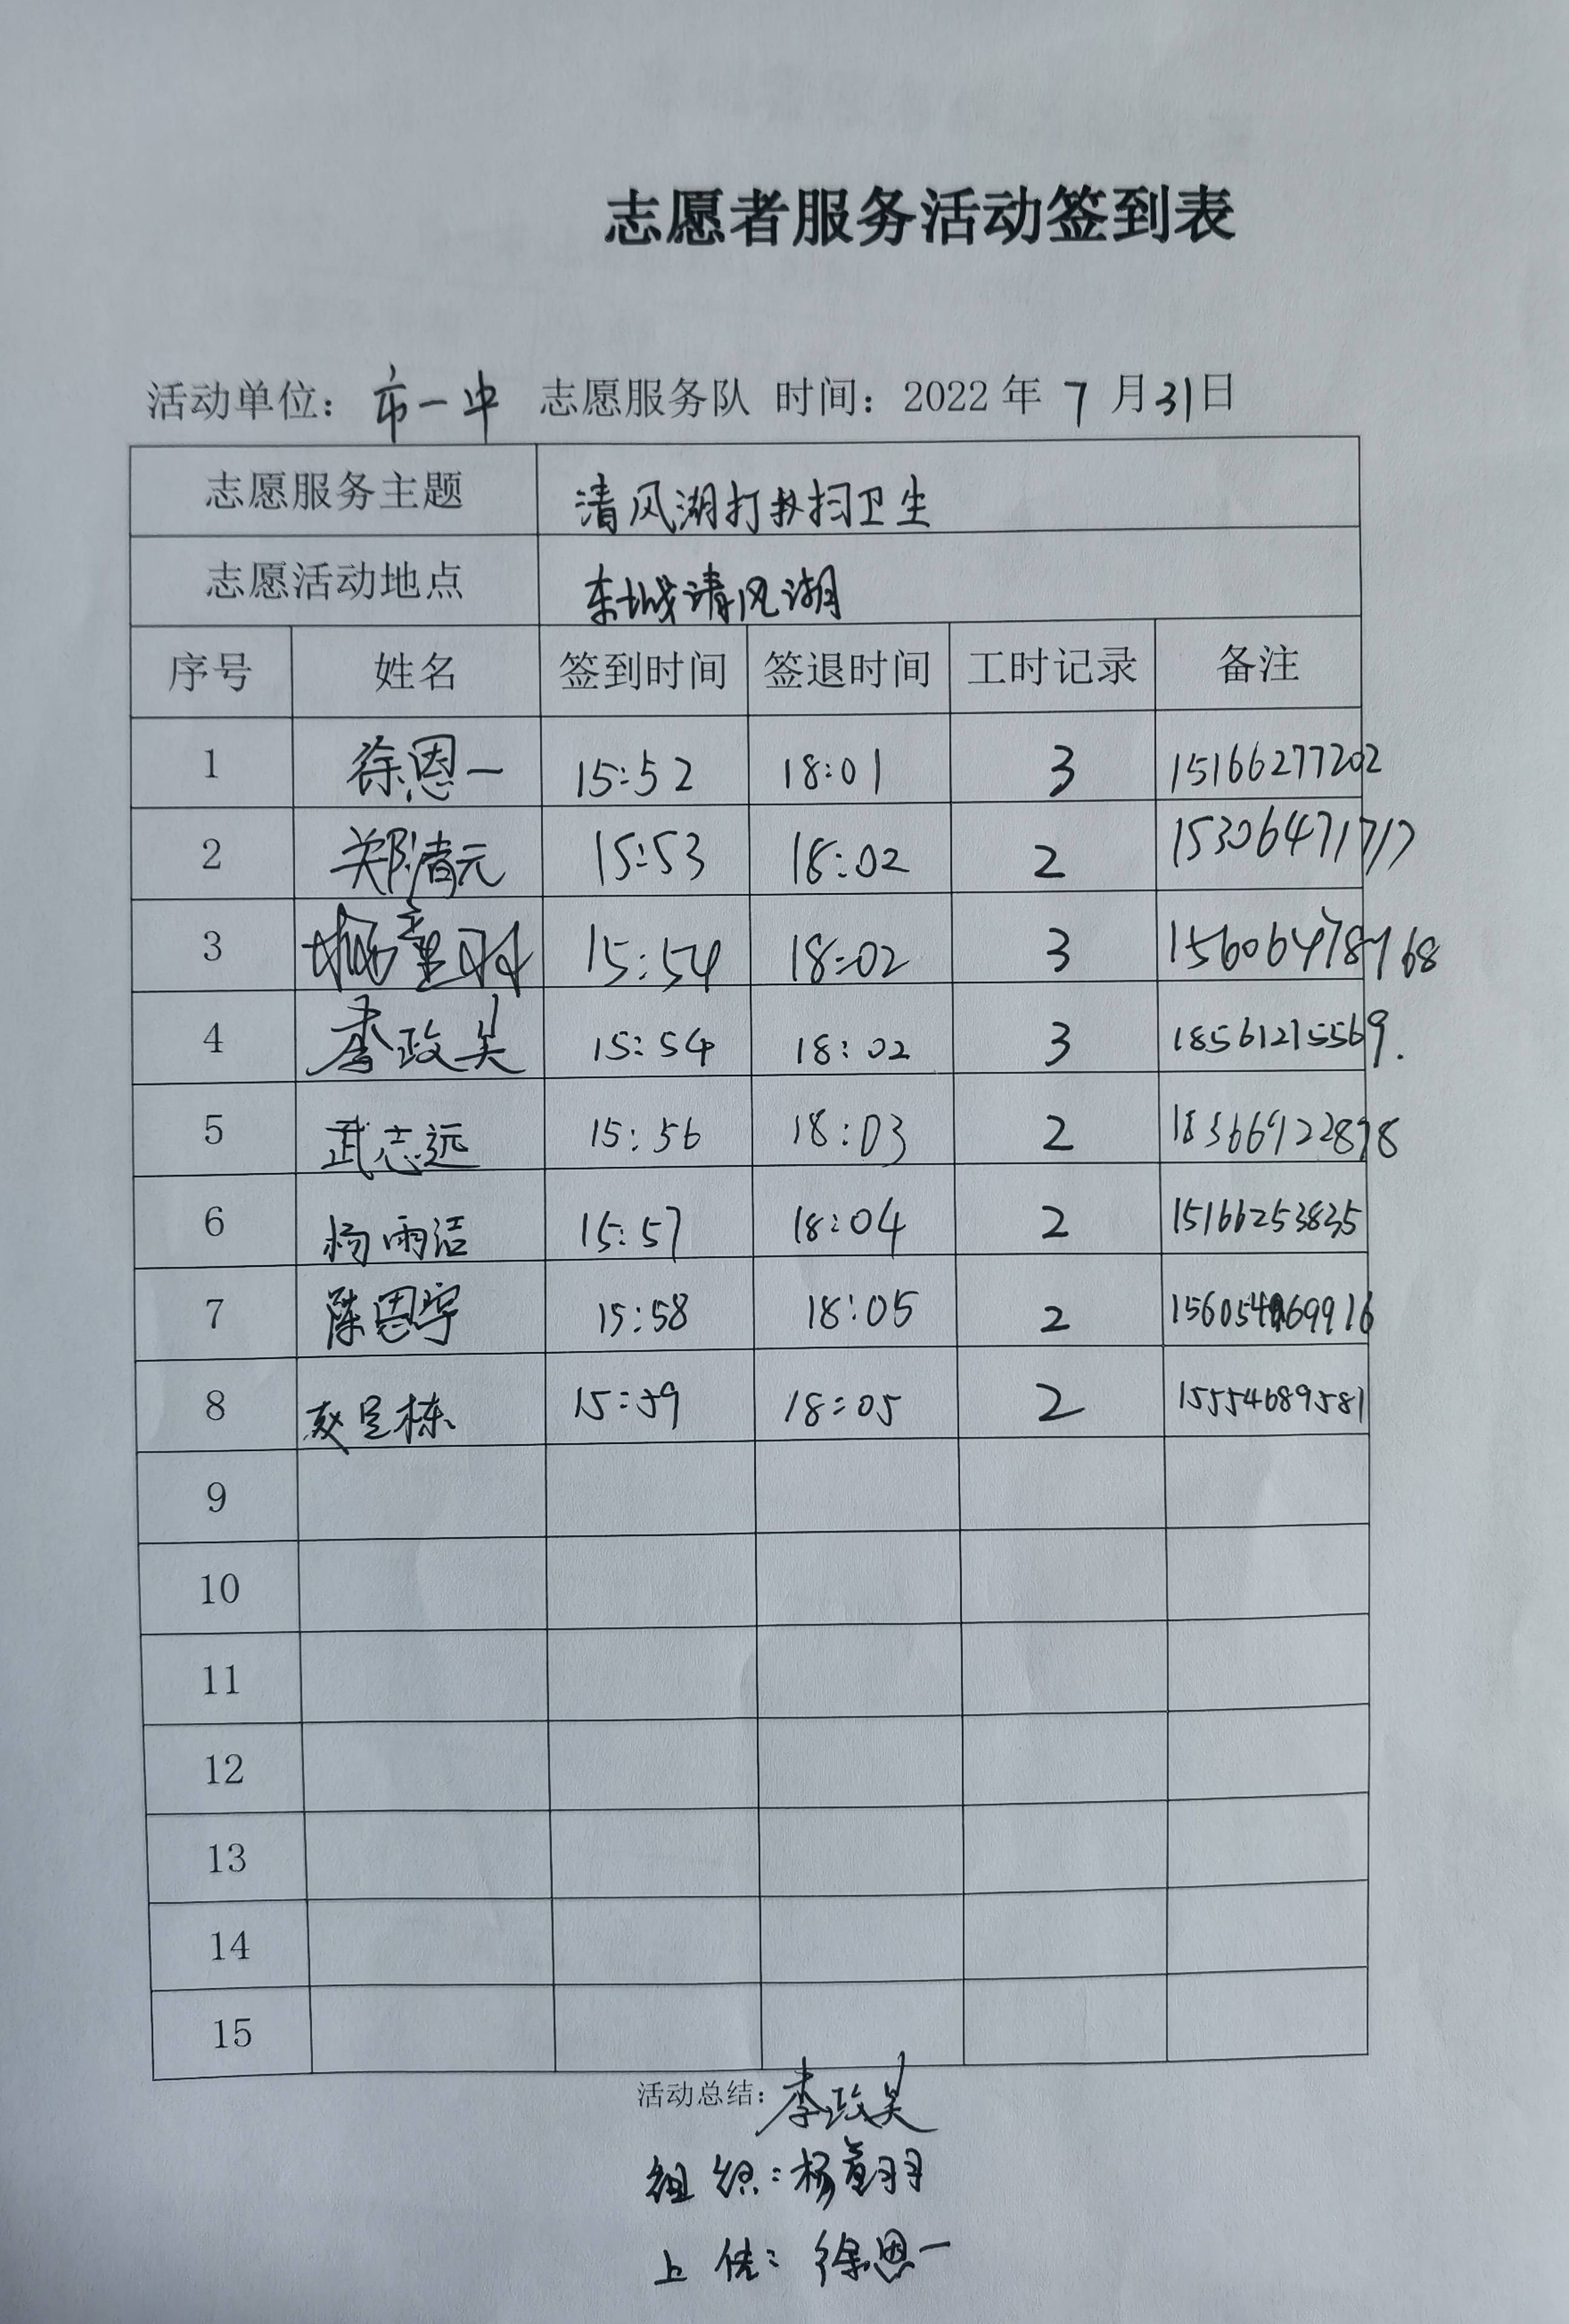 志愿者服务活动签到表
活动单位：市一中 志愿服务队 时间：2022年7月31日
志愿服务主题 清风湖打扫卫生
志愿活动地点 东城清风湖
序号 姓名 签到时间 签退时间 工时记录 备注
1 徐恩一 15:52 18:01 3 15166277202
2 郑清元 15:53 18:02 2 15306471717
3 杨童羽 15:54 18:02 3 15606478768
4 李政昊 15:54 18:02 3 18561215569.
5 武志远 15:56 18:03 2 18366922898
6 杨雨洁 15:57 18:04 2 15166253835
7 陈恩宇 15:58 18:05 2
8 赵呈栋 15:59 18:05 2 15554689581
9
10
11
12
13
14
15
活动总结：李政昊
组织：杨童羽
上传：徐恩一